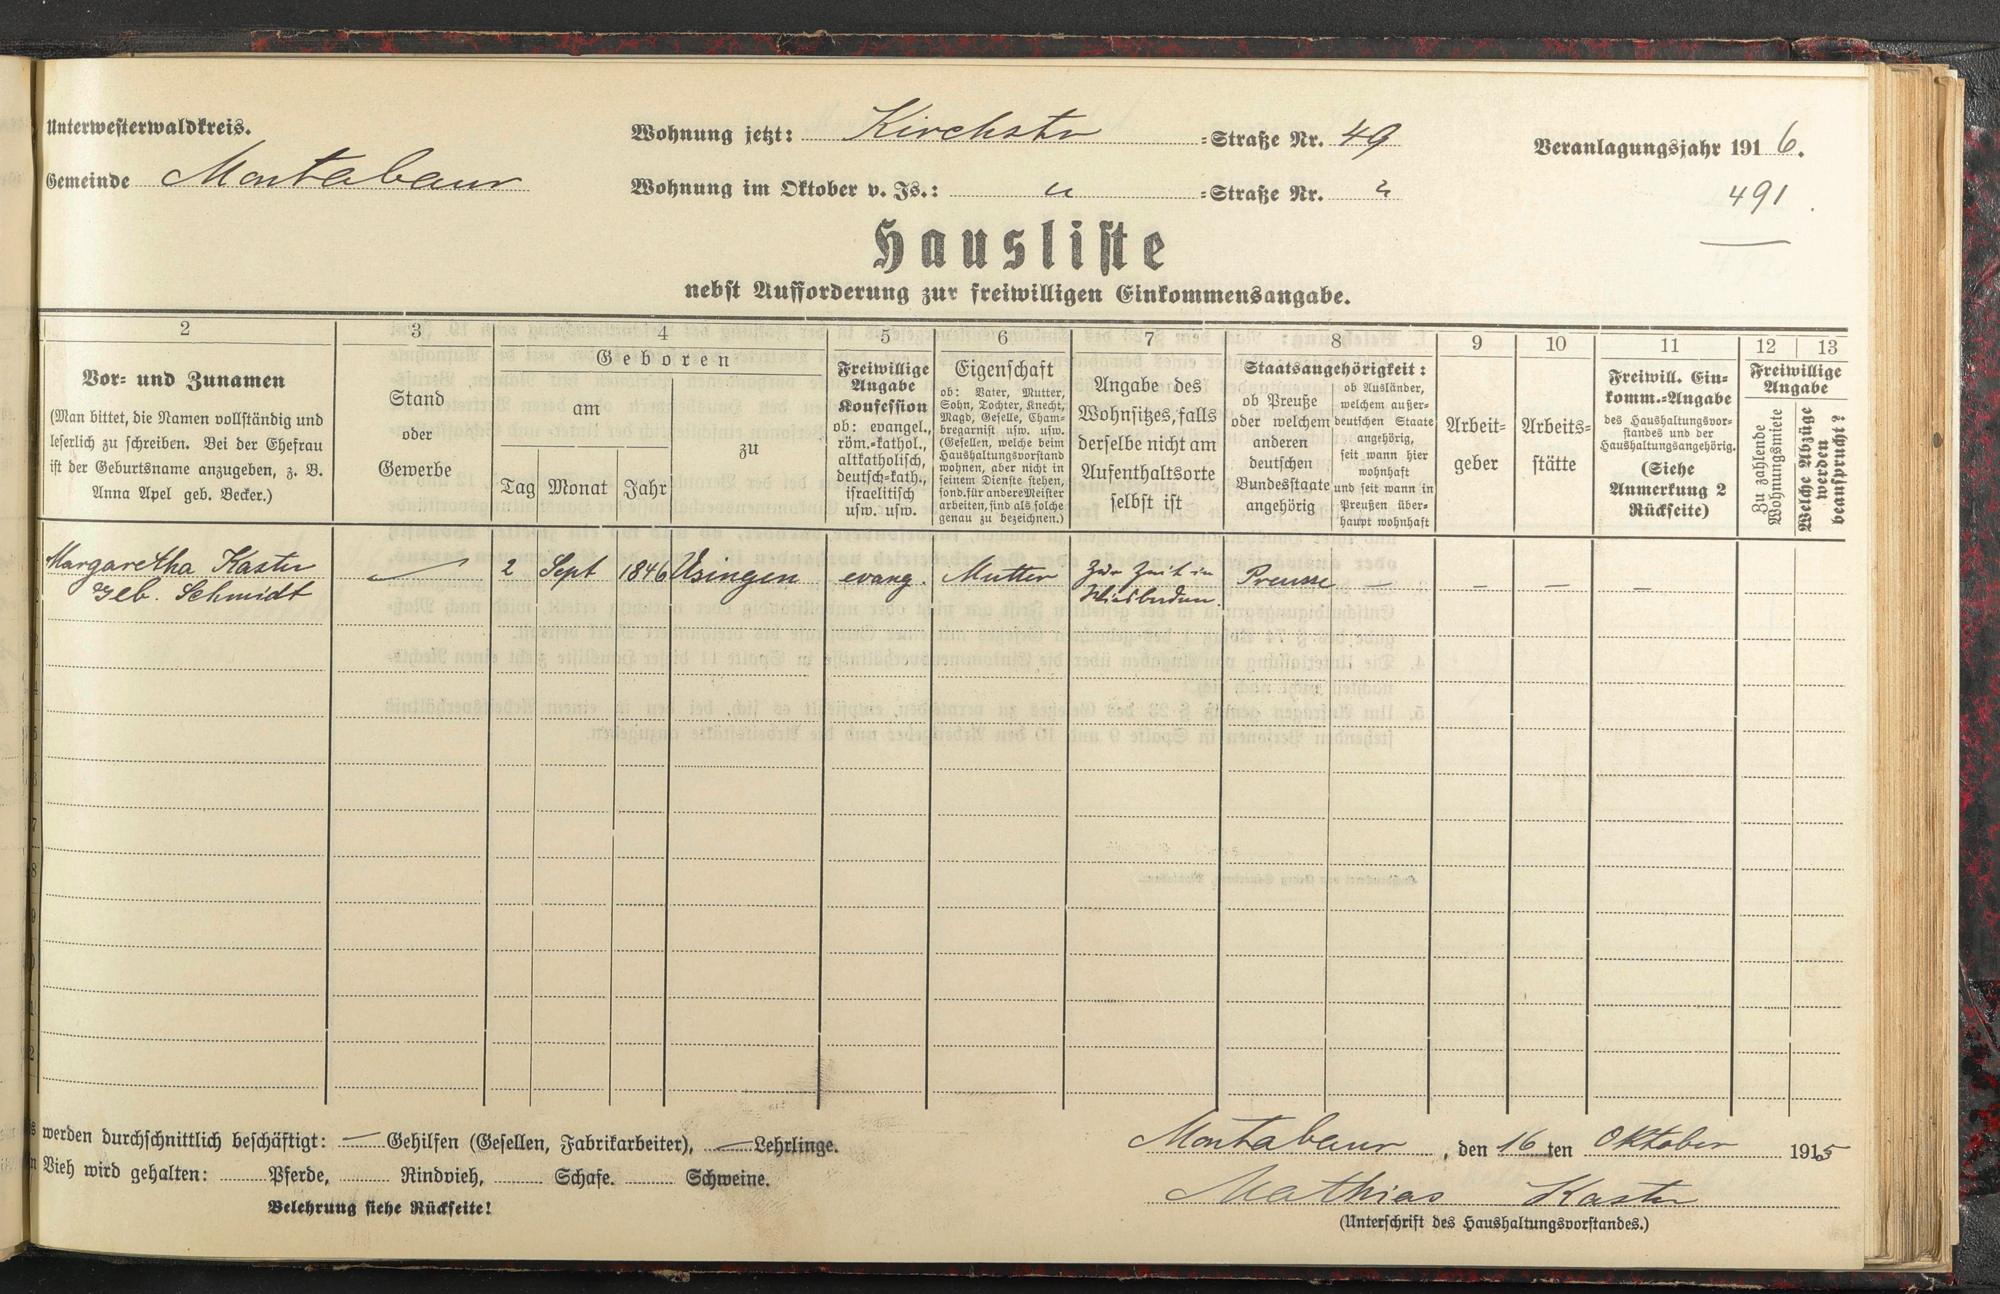 Unterwesterwaldkreis.
Gemeinde Montabaur
Wohnung jetzt: Kirchstr =Straße Nr. 49
Wohnung im Oktober v. Js.: " =Straße Nr. "
Veranlagungsjahr 1916.
491
Hausliste
nebst Aufforderung zur freiwilligen Einkommensangabe.
2
Vor- und Zunamen
(Man bittet, die Namen vollständig und
leserlich zu schreiben. Bei der Ehefrau
ist der Geburtsname anzugeben, z. B.
Anna Apel geb. Becker.)
3
Stand
oder
Gewerbe
4
Geboren
am
Tag Monat Jahr
zu
5
Freiwillige
Angabe
Konfession
ob: evangel.,
röm.-kathol.,
altkatholisch,
deutsch-kath.,
israelitisch
usw. usw.
6
Eigenschaft
ob: Vater, Mutter,
Sohn, Tochter, Knecht,
Magd, Geselle, Cham-
bregarnist usw. usw.
(Gesellen, welche beim
Haushaltungsvorstand
wohnen, aber nicht in
seinem Dienste stehen,
sond. für andere Meister
arbeiten, sind als solche
genau zu bezeichnen.)
7
Angabe des
Wohnsitzes, falls
derselbe nicht am
Aufenthaltsorte
selbst ist
8
Staatsangehörigkeit:
ob Preuße
oder welchem
anderen
deutschen
Bundesstaate
angehörig
ob Ausländer,
welchem außer-
deutschen Staate
angehörig,
seit wann hier
wohnhaft
und seit wann in
Preußen über-
haupt wohnhaft
9
Arbeit-
geber
10
Arbeits-
stätte
11
Freiwill. Ein-
komm.-Angabe
des Haushaltungsvor-
standes und der
Haushaltungsangehörig.
(Siehe
Anmerkung 2
Rückseite)
12 13
Freiwillige
Angabe
Zu zahlende
Wohnungsmiete
Welche Abzüge
werden
beansprucht?
Margaretha Kaster
geb. Schmidt
— 2 Sept 1846 Usingen evang. Mutter
Zur Zeit in
Wiesbaden
Preusse — — — —
3
4
5
7
8
9
werden durchschnittlich beschäftigt: — Gehilfen (Gesellen, Fabrikarbeiter), — Lehrlinge.
Vieh wird gehalten: Pferde, Rindvieh, Schafe. Schweine.
Belehrung siehe Rückseite!
Montabaur, den 16ten Oktober 1915
Mathias Kaster
(Unterschrift des Haushaltungsvorstandes.)